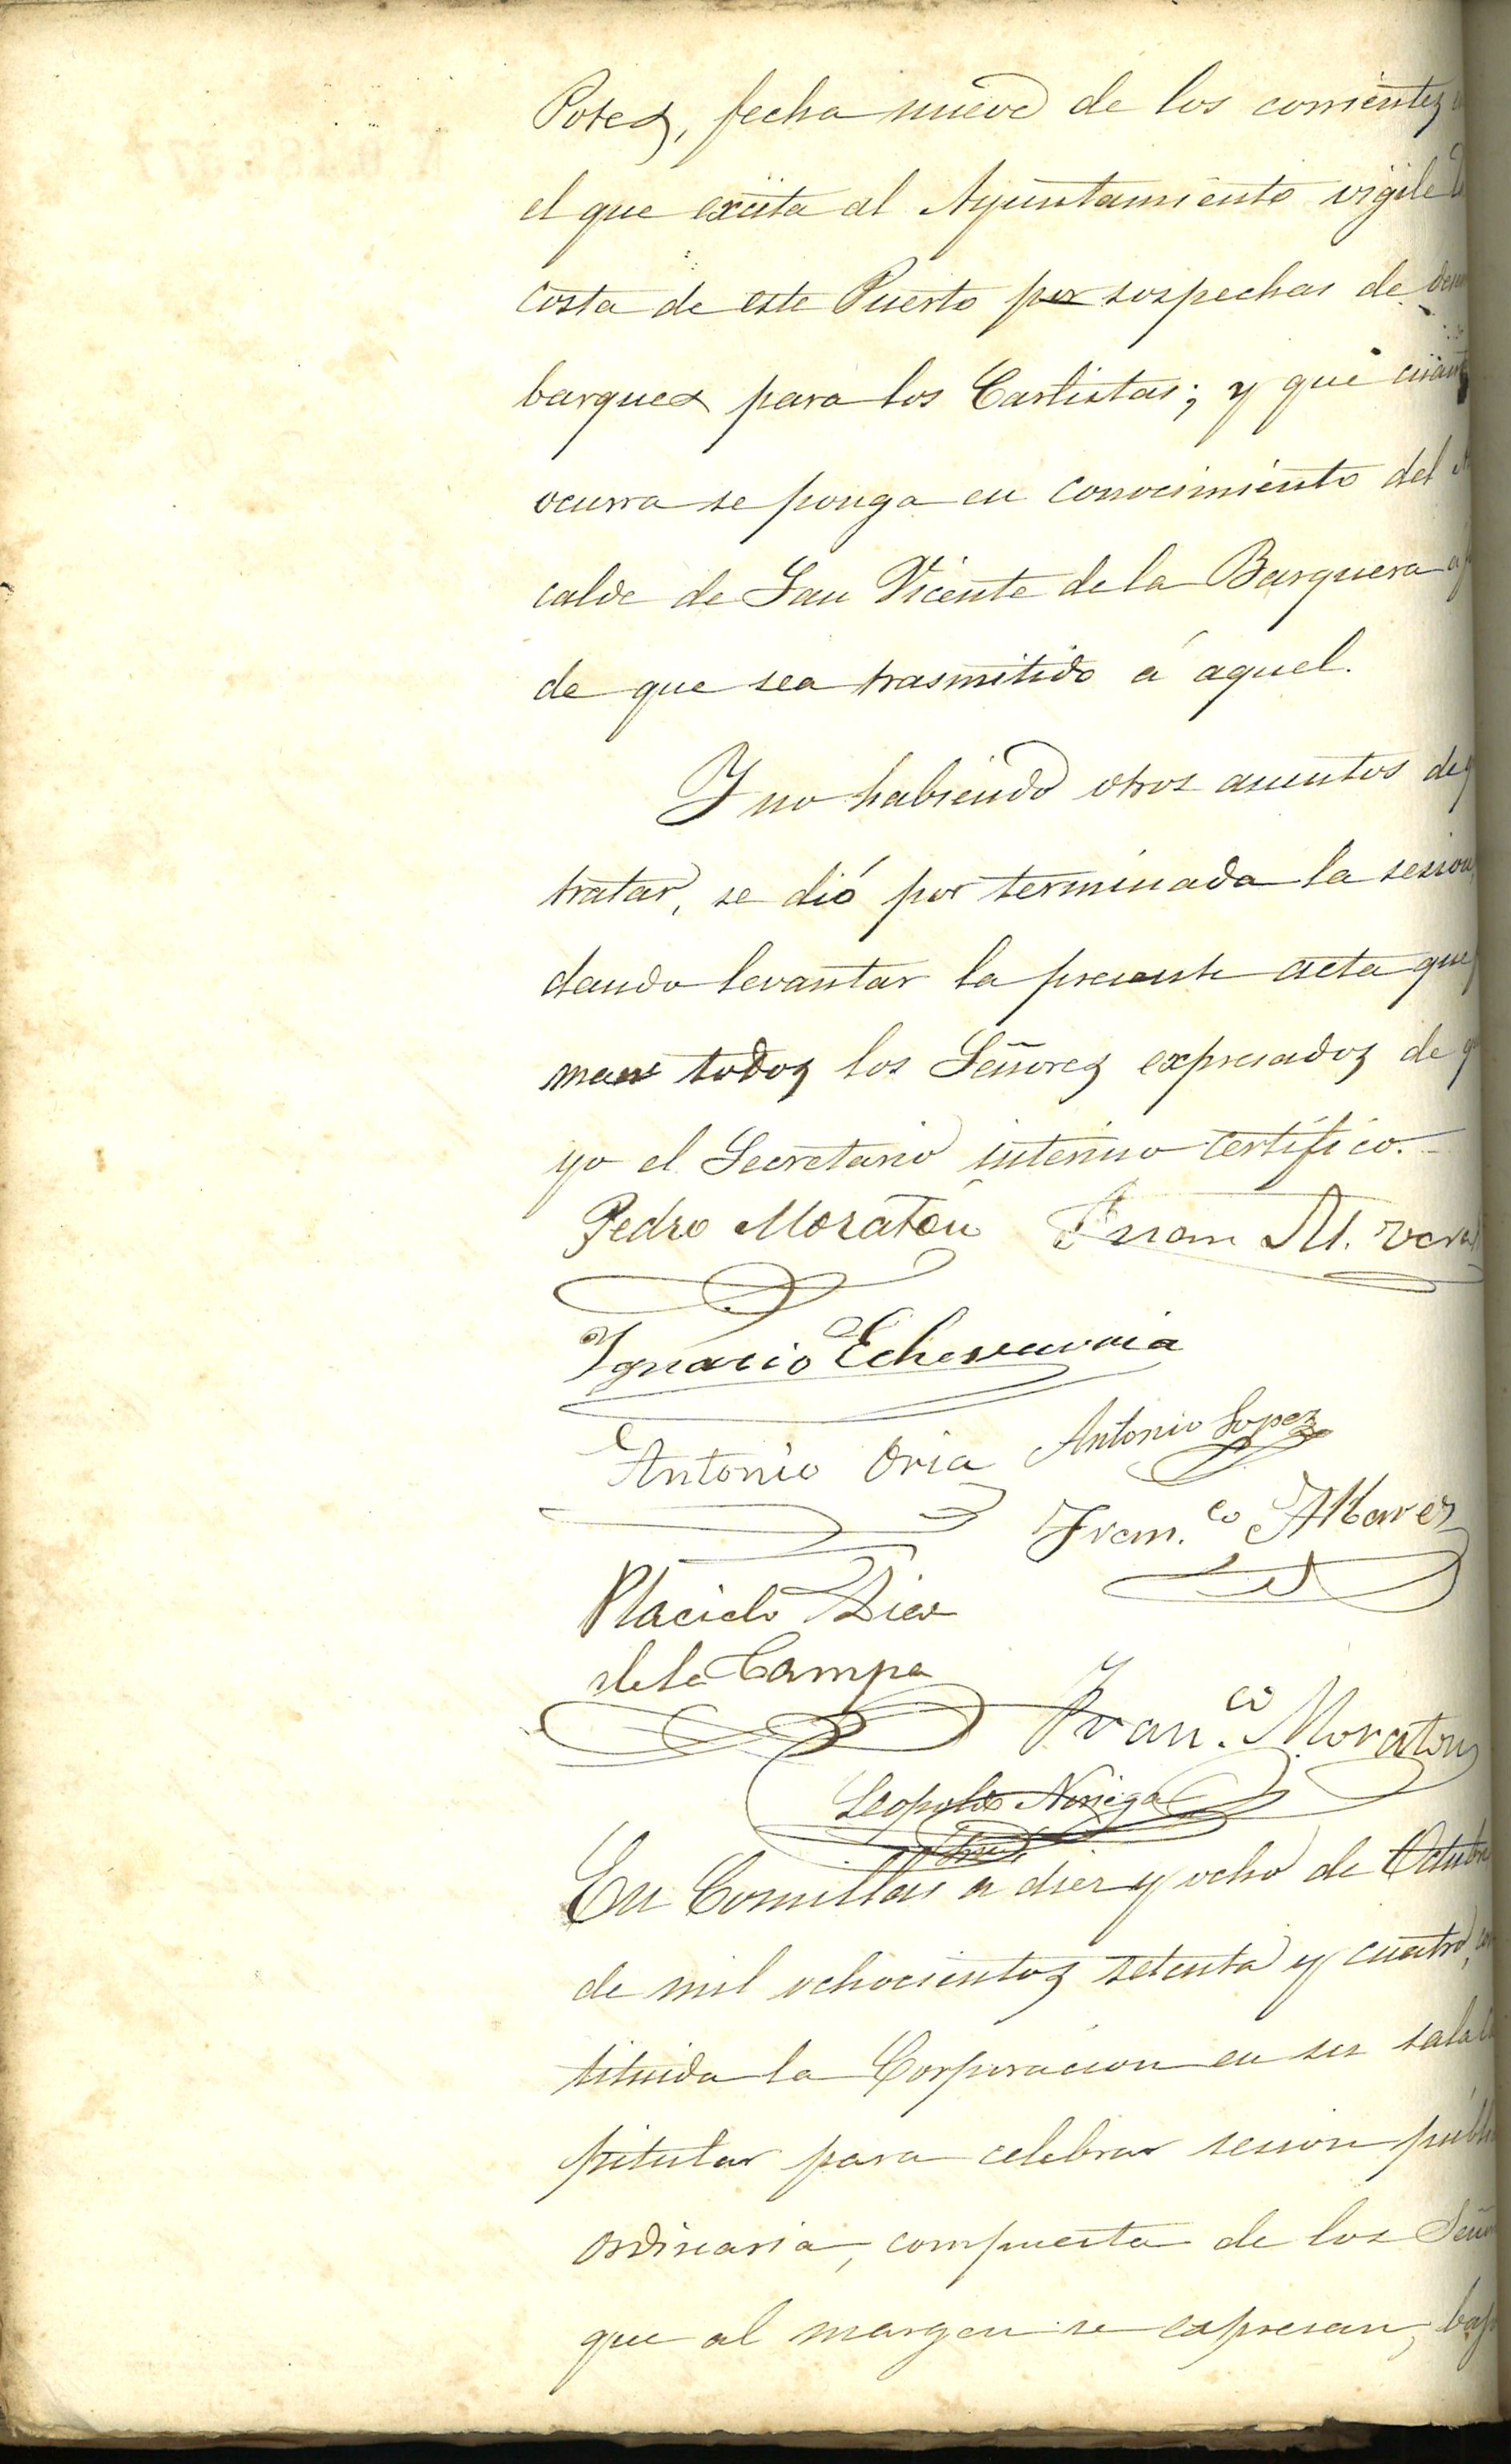 Potes, fecha nueve de los corrientes
el que excita al Ayuntamiento vigile
costa de este Puerto por sospechas de
barques para los Carlistas; y que
ocurra se ponga en conocimiento del
calde de San Vicente de la Barquera
de que sea trasmitido á aquel.
Y no habiendo otros asuntos de
tratar, se dió por terminada la sesion
dando levantar la presente acta que
man todos los Señores expresados de
yo el Secretario interino certifico.
Pedro Moratón Juan M.
Ignacio Echevarria
Antonio Oria Antonio Lopez
Fran.co Alvarez
Placido Diez
de la Campa
Fran.co Moraton
Leopoldo Noriega
En Comillas a diez y ocho de Octubre
de mil ochocientos setenta y cuatro,
tituida la Corporacion en su sala
pitular para celebrar sesion
ordinaria, compuesta de los
que al margen se expresan,